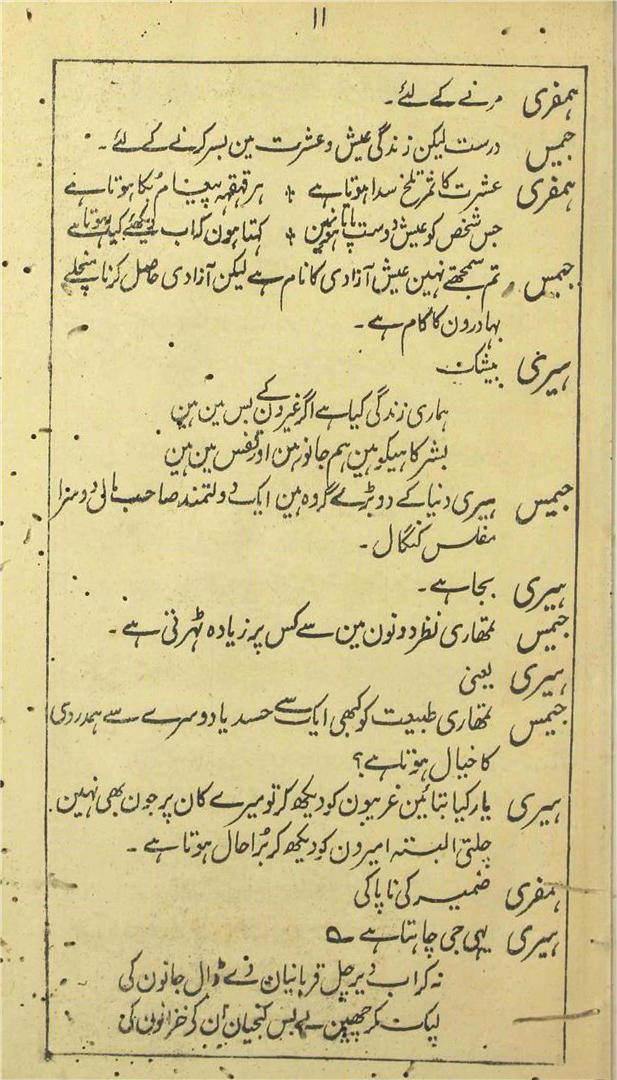 ۱۱
ہمفری مرنے کے لئے۔
جمیس درست لیکن زندگی عیش و عشرت مین بسر کرنے کے لئے۔
ہمفری عشرت کا ثمر تلخ سدا ہوتا ہے + ہر قہقہہ پیغام بُکا ہوتا ہے
جس شخص کو عیش دوست پاتا ہون مین + کہتا ہون کہ اب دیکھئے کیا ہوتا ہے
جمیس تم سمجھتے نہین عیش آزادی کا نام ہے لیکن آزادی حاصل کرنا منچلے
بہادرون کا کام ہے۔
ہیری بیشک
ہماری زندگی کیا ہے اگر غیرون کے بس مین ہین
بشر کاہیکو ہین ہم جانور ہین اور قفس مین ہین
جمیس ہیری دنیا کے دو بڑے گروہ ہین ایک دولتمند صاحب مال دوسرا
مفلس کنگال۔
ہیری بجا ہے۔
جمیس تمھاری نظر دونون مین سے کس پر زیادہ ٹہرتی ہے۔
ہیری یعنی
جمیس تمھاری طبیعت کو کبھی ایک سے حسد یا دوسرے سے ہمدردی
کا خیال ہوتا ہے؟
ہیری یار کیا بتائین غریبون کو دیکھ کر تو میرے کان پر جون بھی نہین
چلتی البتہ امیرون کو دیکھ کر بُرا حال ہوتا ہے۔
ہمفری ضمیر کی ناپاکی
ہیری یہی جی چاہتا ہے ؎
نہ کر اب دیر چل قربانیان دے ڈال جانون کی
لپک کر چھین لے بس کنجیان اُن کے خزانون کی